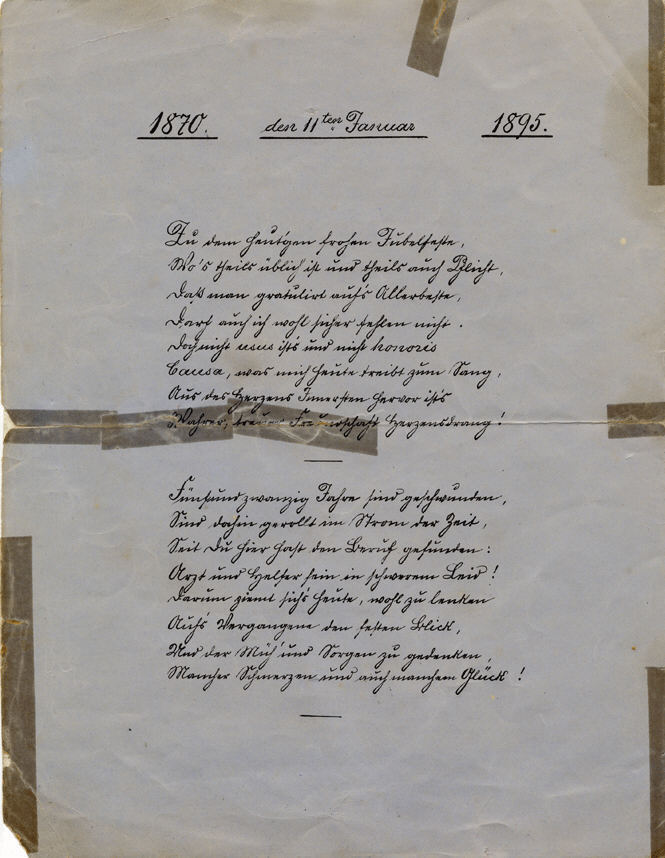 1870. den 11ten Januar 1895.
Zu dem heut'gen frohen Jubelfeste,
Wo's theils üblich ist und theils auch Pflicht,
Daß man gratulirt auf's Allerbeste,
Darf auch ich wohl sicher fehlen nicht.
Doch nicht usus ist's und nicht honoris
Causa, was mich heute treibt zum Sang,
Aus des Herzens Innersten hervor ist's
Wahrer, treuer Freundschaft Herzensdrang!
Fünfundzwanzig Jahre sind geschwunden,
Sind dahin gerollt im Strom der Zeit,
Seit Du hier hast den Beruf gefunden:
Arzt und Helfer sein in schwerem Leid!
Darum ziemt sich's heute, wohl zu lenken
Auf's Vergangene den festen Blick,
Und der Müh' und Sorgen zu gedenken,
Mancher Schmerzen und auch manchem Glück!